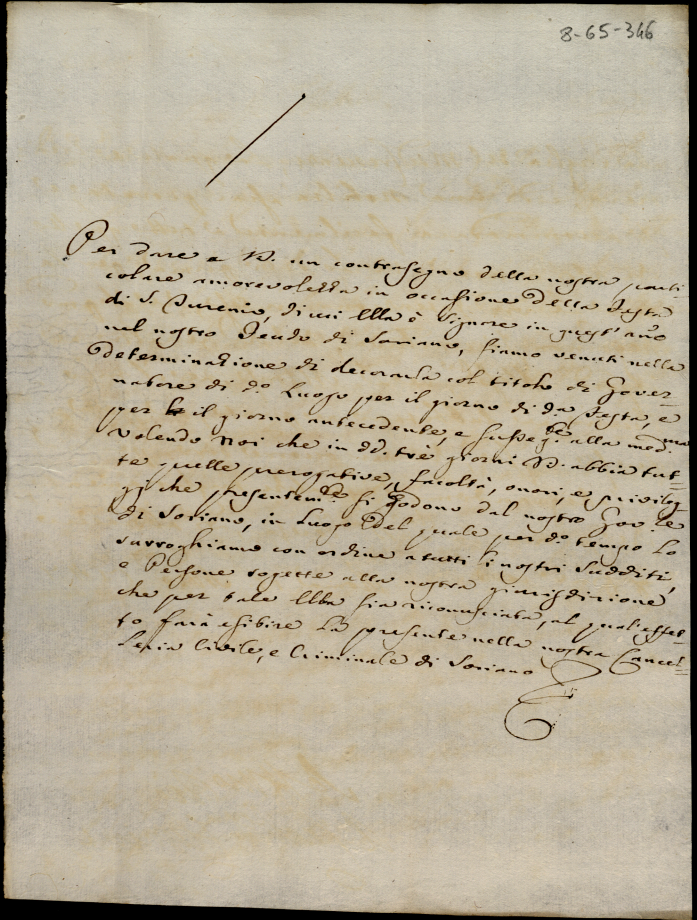 8-65-346
Per dare a V. un contrasegno della nostra parti-
colare amorevolezza in occasione della Festa
di S. Eutenio, di cui Ella è Signore in quest' año
nel nostro Feudo di Soriano, siamo venuti nella
determinazione di decorarla col titolo di Gover-
natore di d.o Luogo per il giorno di d.a Festa, e
per il giorno antecedente, e susseg.te alla med.ma
Volendo Noi che in dd. trè giorni V. abbia tut-
te quelle prerogative, facoltà, onori, e privileg-
gi che presentem.te si godono dal nostro Gov.re
di Soriano, in Luogo del quale per d.o tempo Lo
surroghiamo con ordine a tutti i nostri Sudditi,
e Persone sogette alla nostra giurisdizione
che per tale Ella sia riconosciuta, al qual effet-
to farà esibire La presente nella nostra Cancel-
leria Civile, e Criminale di Soriano